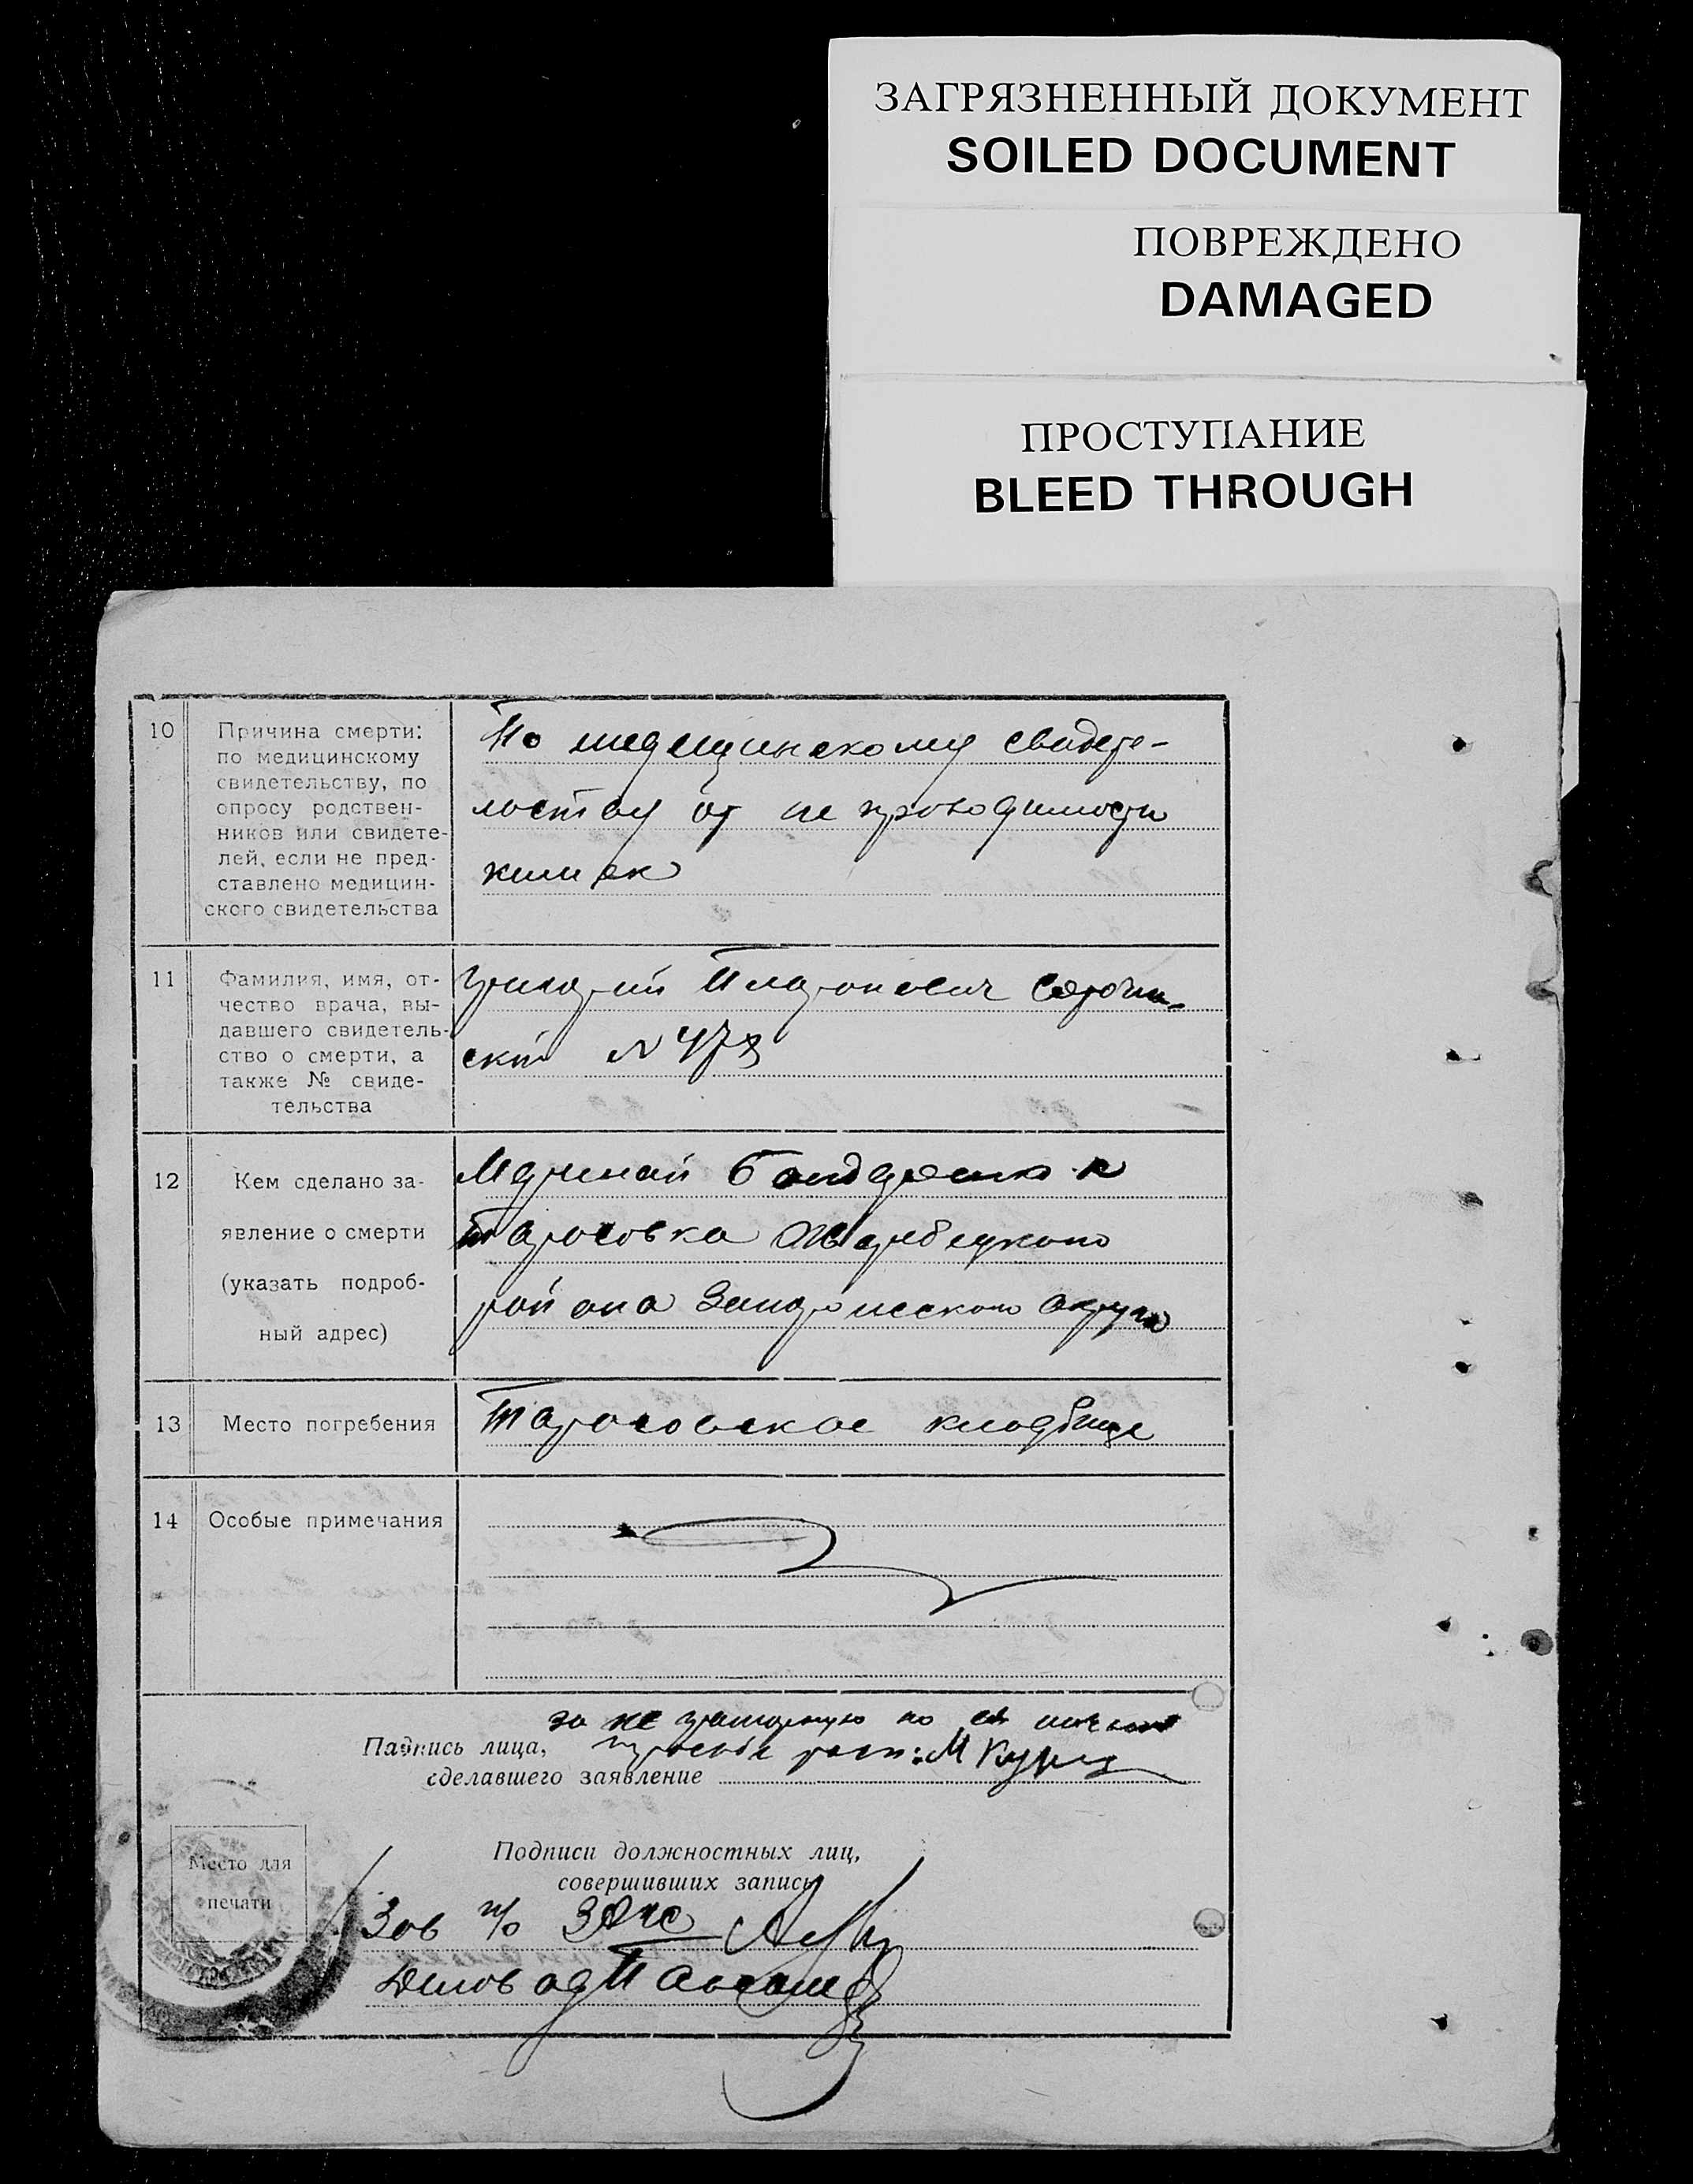 ЗАГРЯЗНЕННЫЙ ДОКУМЕНТ
SOILED DOCUMENT
ПОВРЕЖДЕНО
DAMAGED
ПРОСТУПАНИЕ
BLEED THROUGH
10
Причина смерти:
по медицинскому
свидетельству, по
опросу родствен-
ников или свидете-
лей, если не пред-
ставлено медицин-
ского свидетельства
По медицинскому свидете-
льству от не проходимости
кишек
11
Фамилия, имя, от-
чество врача, вы-
давшего свидетель-
ство о смерти, а
также № свиде-
тельства
Григорий Платонович
ский N 478
12
Кем сделано за-
явление о смерти
(указать подроб-
ный адрес)
Мариной Бондаренко
Тарасовка Жеребецкого
района Запорожского округа
13
Место погребения
Тарасовское кладбище
14
Особые примечания
за не грамотную по её личной
Падпись лица,
просьбе расп: М
сделавшего заявление
Место для
печати
Подписи должностных лиц,
совершивших запись
Зав п/о ЗАГС
Деловод